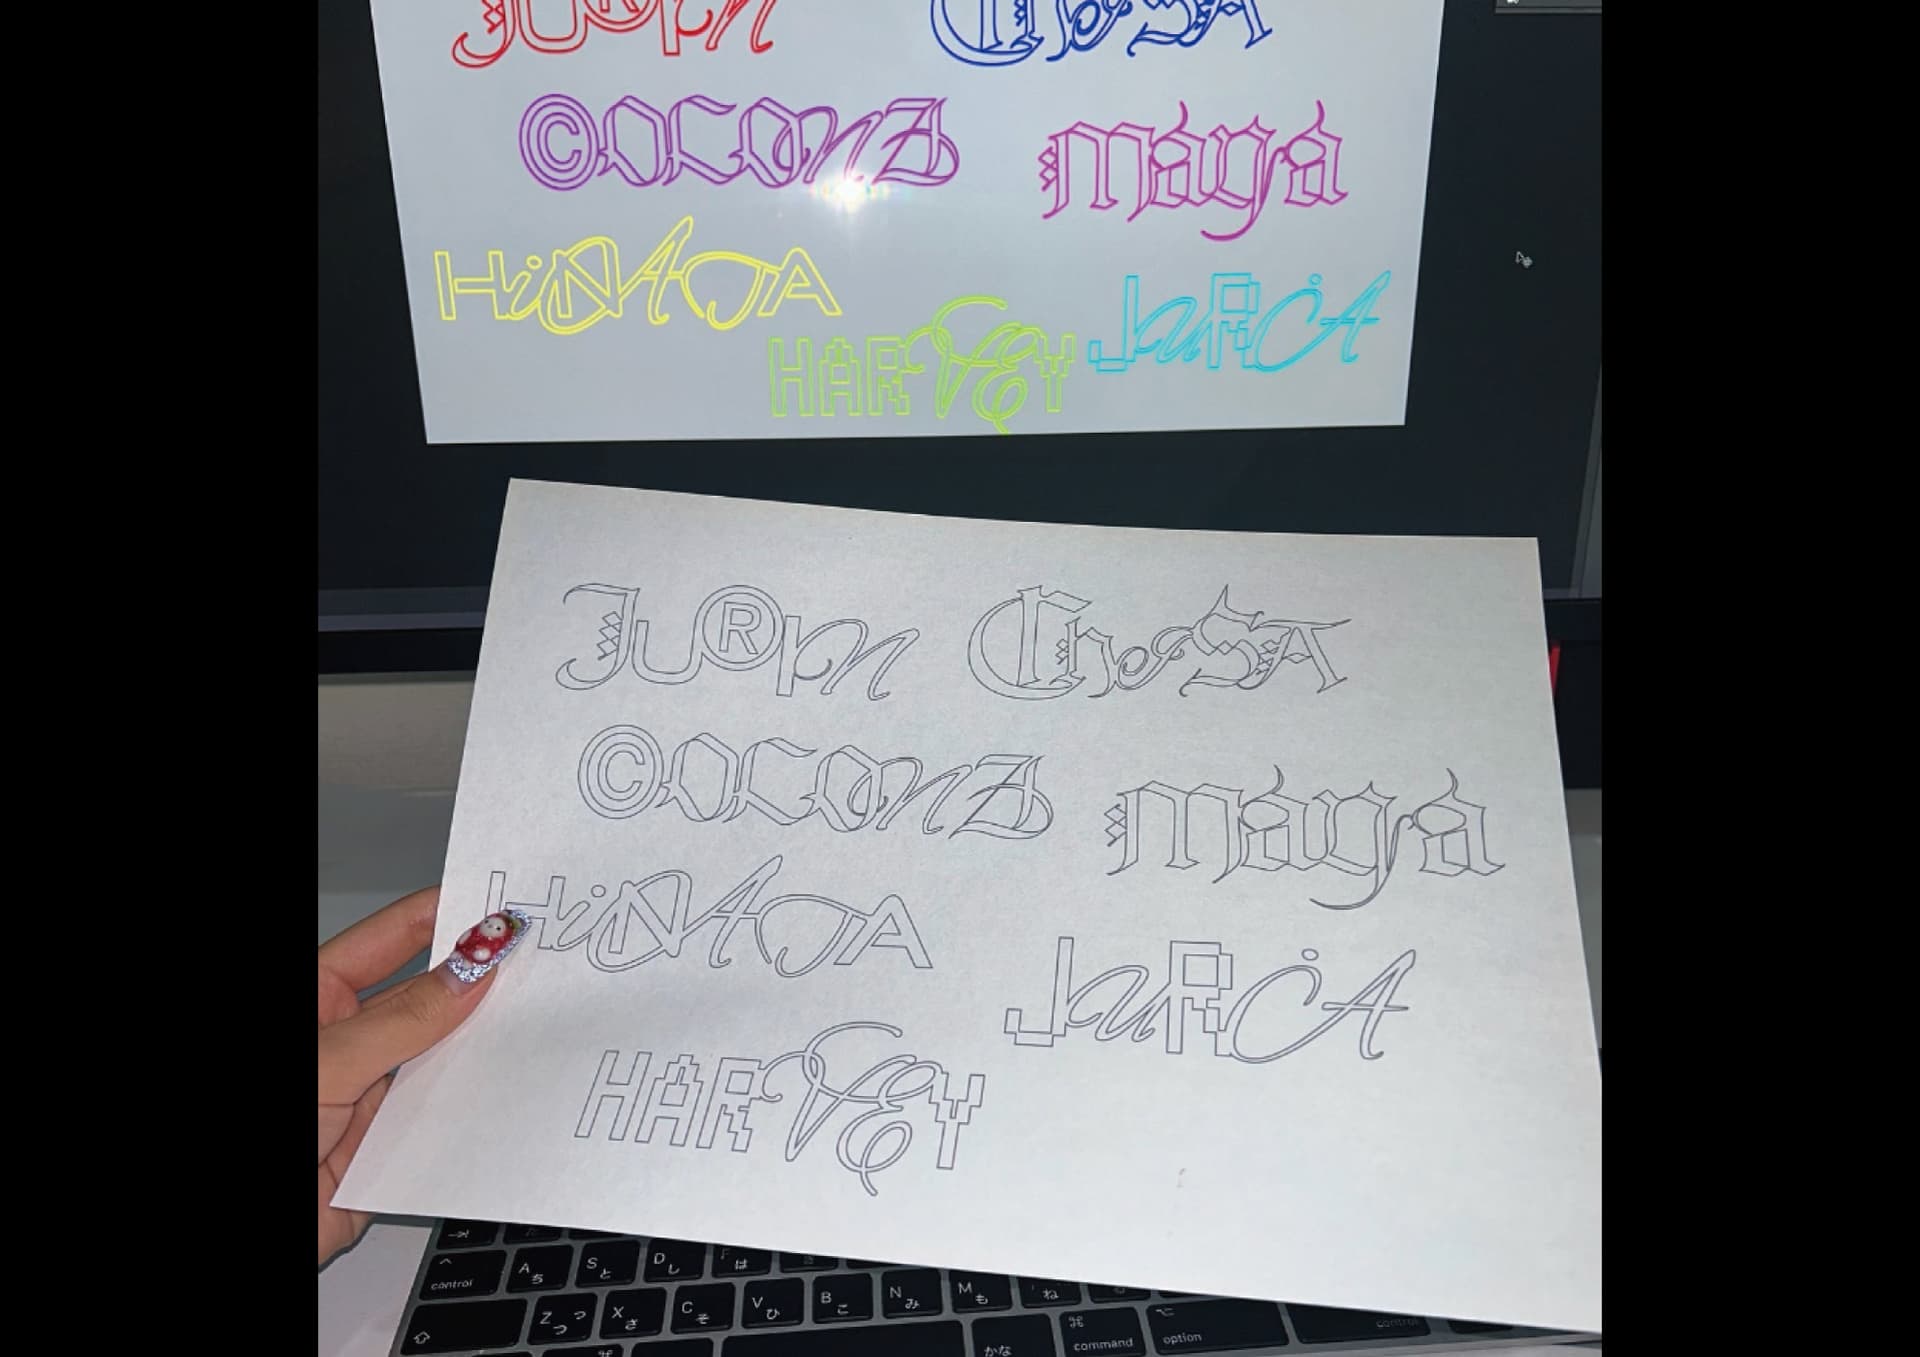 JU®IN ChiSA
©OCONA maya
HiNATA
HARVEY JURiA
JU®IN ChiSA
©OCONA maya
HiNATA
JURiA
HARVEY
control A ち S と D し F は
Z つ っ X さ C そ V ひ B こ N み M も ね
⌘ かな ⌘ command ⌥ option control